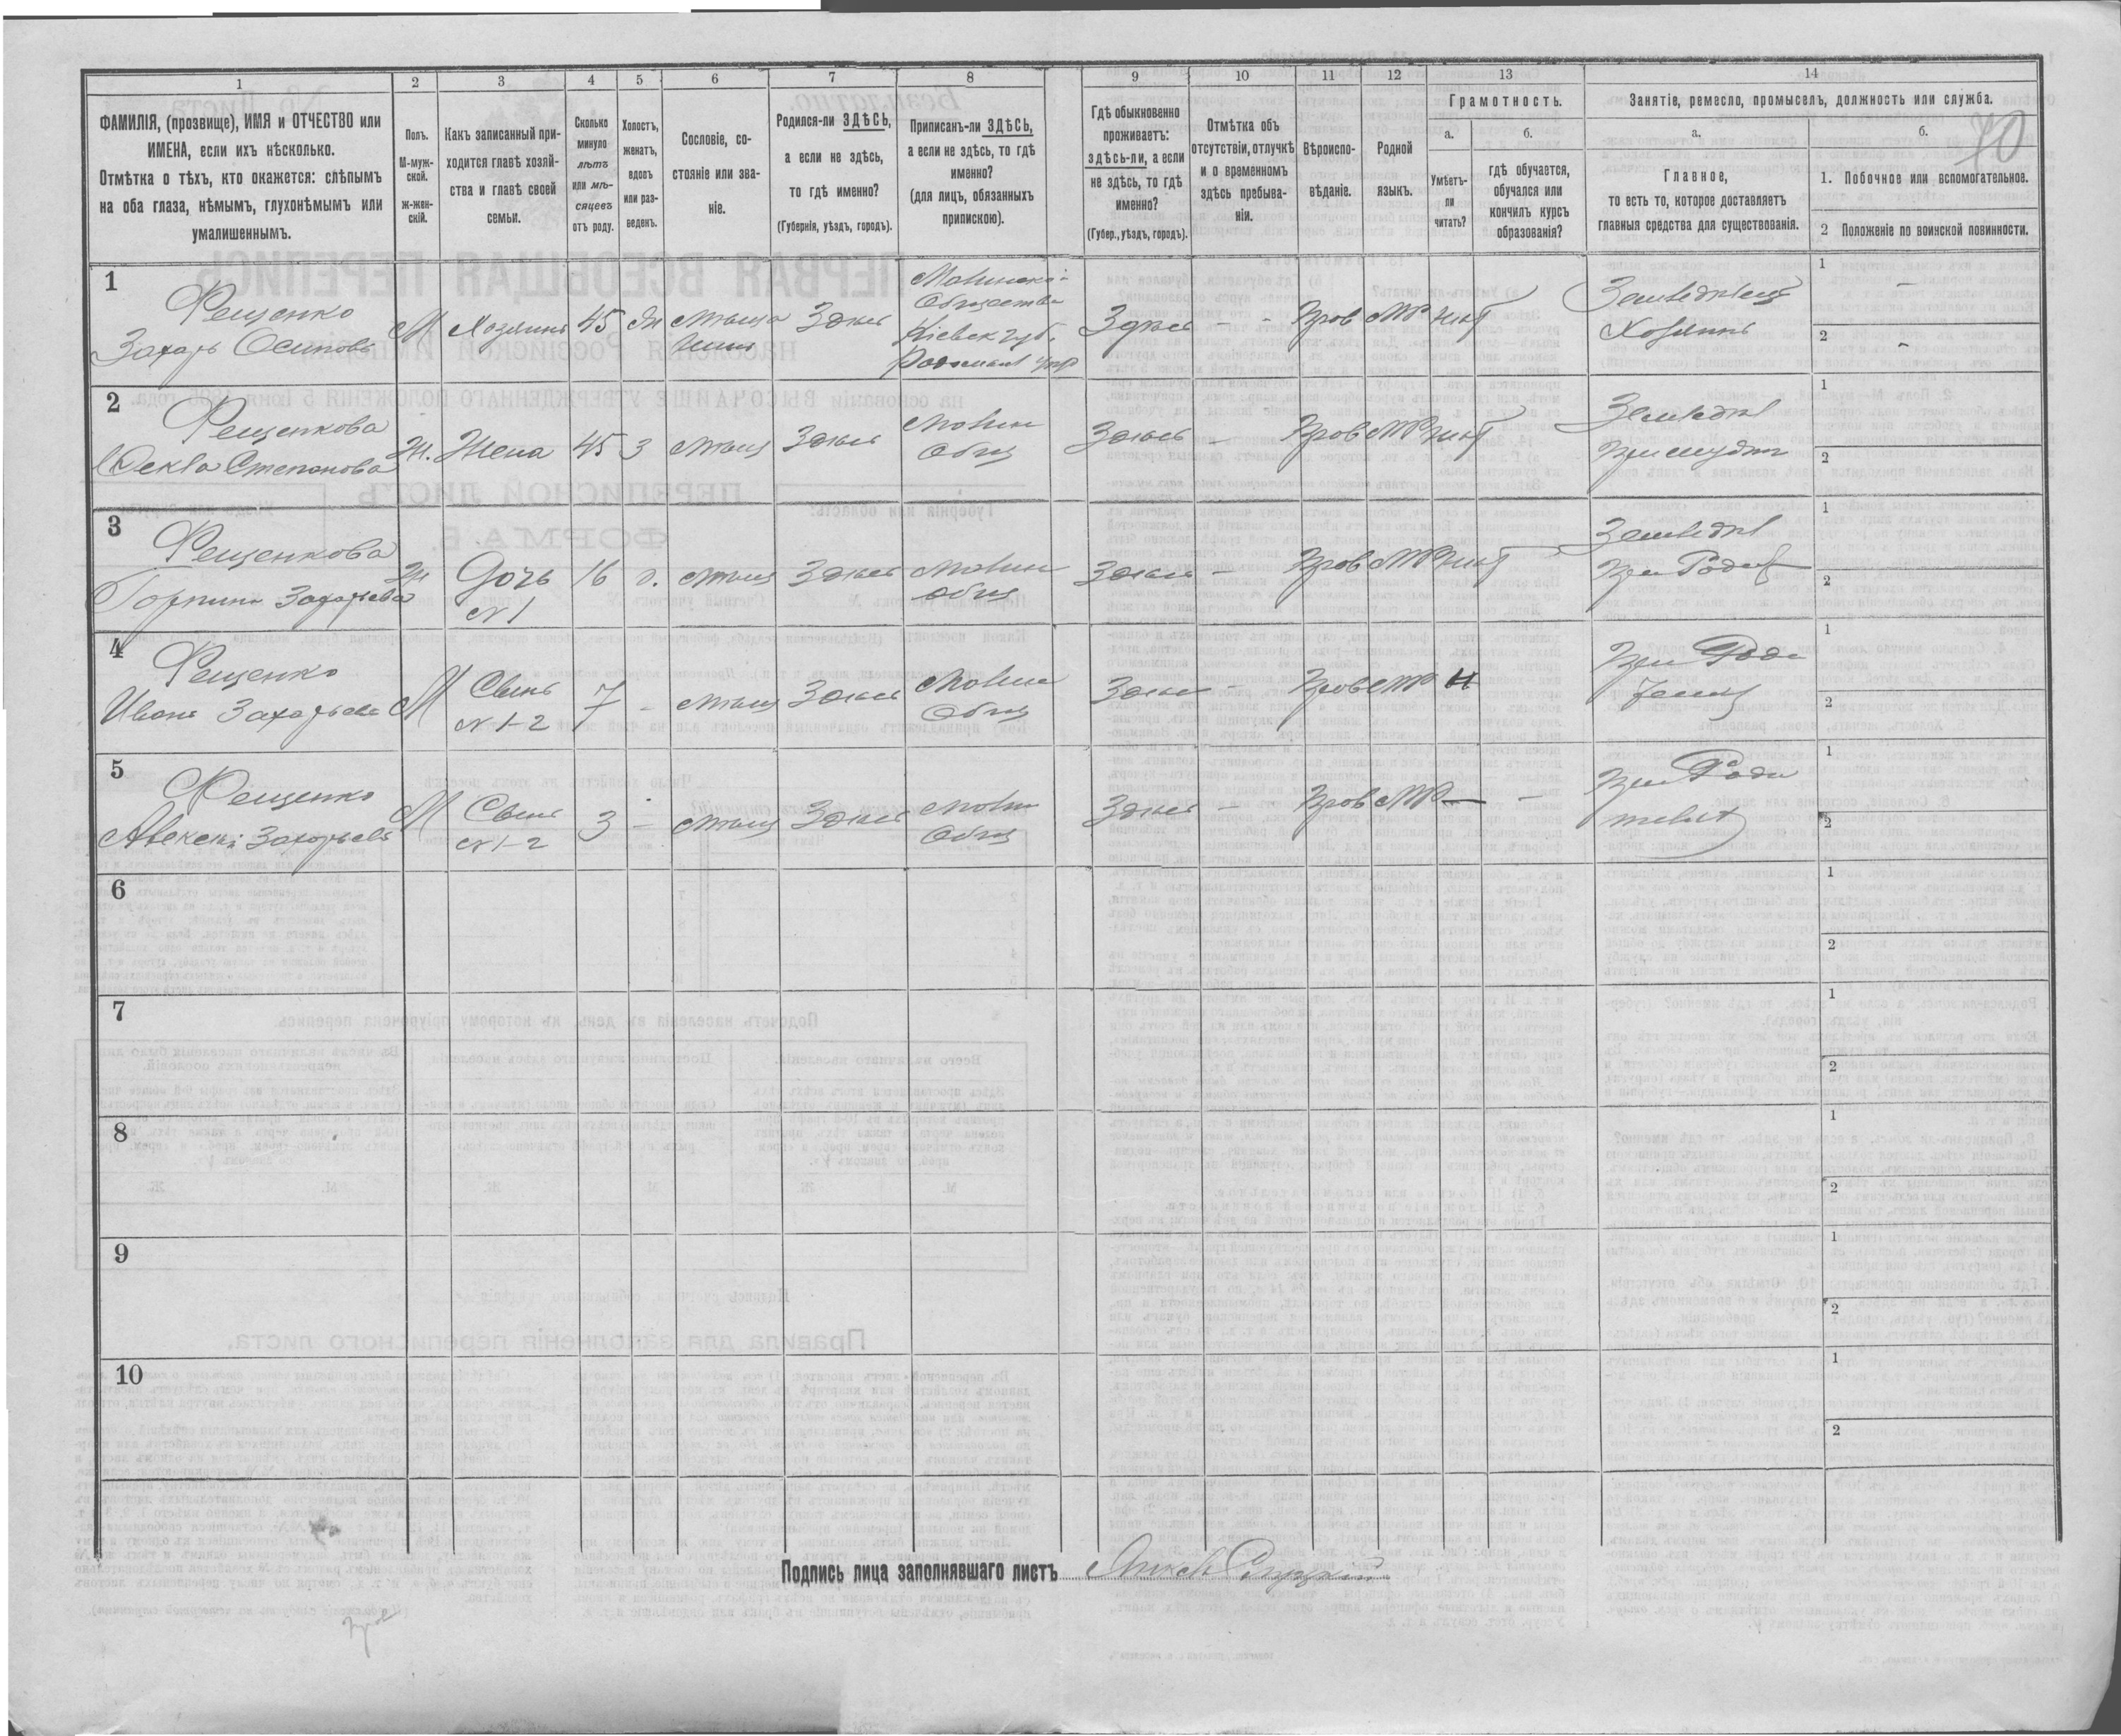 1 2 3 4 5 6 7 8 9 10 11 12 13 14
ФАМИЛІЯ, (прозвище), ИМЯ и ОТЧЕСТВО или
ИМЕНА, если ихъ нѣсколько.
Отмѣтка о тѣхъ, кто окажется: слѣпымъ
на оба глаза, нѣмымъ, глухонѣмымъ или
умалишеннымъ.
Полъ.
М-муж-
ской.
ж-жен-
скій.
Какъ записанный при-
ходится главѣ хозяй-
ства и главѣ своей
семьи.
Сколько
минуло
лѣтъ
или мѣ-
сяцевъ
отъ роду.
Холостъ,
женатъ,
вдовъ
или раз-
веденъ.
Сословіе, со-
стояніе или зва-
ніе.
Родился-ли ЗДѢСЬ,
а если не здѣсь,
то гдѣ именно?
(Губернія, уѣздъ, городъ).
Приписанъ-ли ЗДѢСЬ,
а если не здѣсь, то гдѣ
именно?
(для лицъ, обязанныхъ
припискою).
Гдѣ обыкновенно
проживаетъ:
здѣсь-ли, а если
не здѣсь, то гдѣ
именно?
(Губер., уѣздъ, городъ).
Отмѣтка объ
отсутствіи, отлучкѣ
и о временномъ
здѣсь пребыва-
ніи.
Вѣроиспо-
вѣданіе.
Родной
языкъ.
Грамотность.
а.
Умѣетъ-
ли
читать?
б.
гдѣ обучается,
обучался или
кончилъ курсъ
образованія?
Занятіе, ремесло, промыселъ, должность или служба.
а.
Главное,
то есть то, которое доставляетъ
главныя средства для существованія.
б.
70
1. Побочное или вспомогательное.
2 Положеніе по воинской повинности.
1
Фещенко
Захаръ Осиповъ
М Хозяинъ 45 Здѣсь
Общества
Кіевск губ.
Здѣсь - - Прав МР нѣт
Хозяинъ
1 -
2 -
2
Фещенкова
Степанова
Ж. Жена 45 З мѣщ Здѣсь
Общ
Здѣсь - Прав МР нѣт
1
2
3
Фещенкова
Горпина Захарьева
Ж Дочь 16 мѣщ Здѣсь
N 1
общ
Здѣсь - Прав МР нѣт
1
2
4
Фещенко
Иванъ Захарьевъ
М Сынъ 7 - мѣщ Здѣсь
N 1-2
Общ
Здѣсь - Прав МР н
При Роди
1
2
5
Фещенко
Алексѣй Захарьевъ
М Сынъ 3 - мѣщ Здѣсь
N 1-2
Общ
Здѣсь - Прав МР - -
При Роди
1
2
6
1
2
7
1
2
8
1
2
9
1
2
10
1
2
Подпись лица заполнявшаго листъ